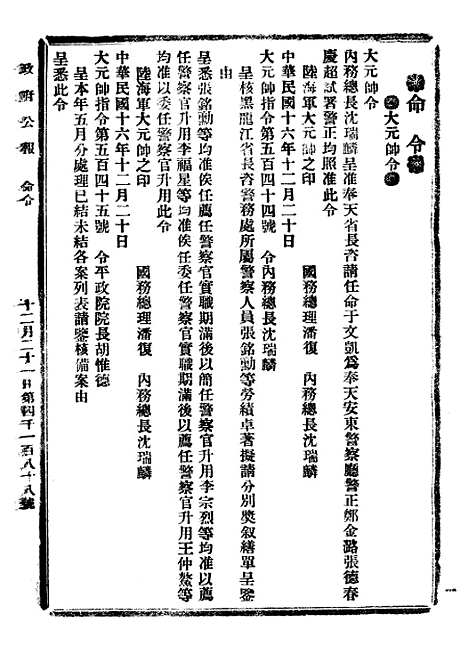 命令
大元帥令
大元帥令
內務總長沈瑞麟呈准奉天省長咨請任命于文凱爲奉天安東警察廳警正鄭金潞張德春
慶超試署警正均照准此令
陸海軍大元帥之印
國務總理潘復 內務總長沈瑞麟
中華民國十六年十二月二十日
大元帥指令第五百四十四號 令內務總長沈瑞麟
呈核黑龍江省長咨警務處所屬警察人員張銘勳等勞績卓著擬請分別獎叙繕單呈鑒
由
呈悉張銘勳等均准俟任薦任警察官實職期滿後以簡任警察官升用李宗烈等均准以薦
任警察官升用李福星等均准俟任委任警察官實職期滿後以薦任警察官升用王仲鰲等
均准以委任警察官升用此令
陸海軍大元帥之印
國務總理潘復 內務總長沈瑞麟
中華民國十六年十二月二十日
大元帥指令第五百四十五號 令平政院院長胡惟德
呈本年五月分處理已結未結各案列表請鑒核備案由
呈悉此令
政府公報 命令
十二月二十一日第四千一百八十八號